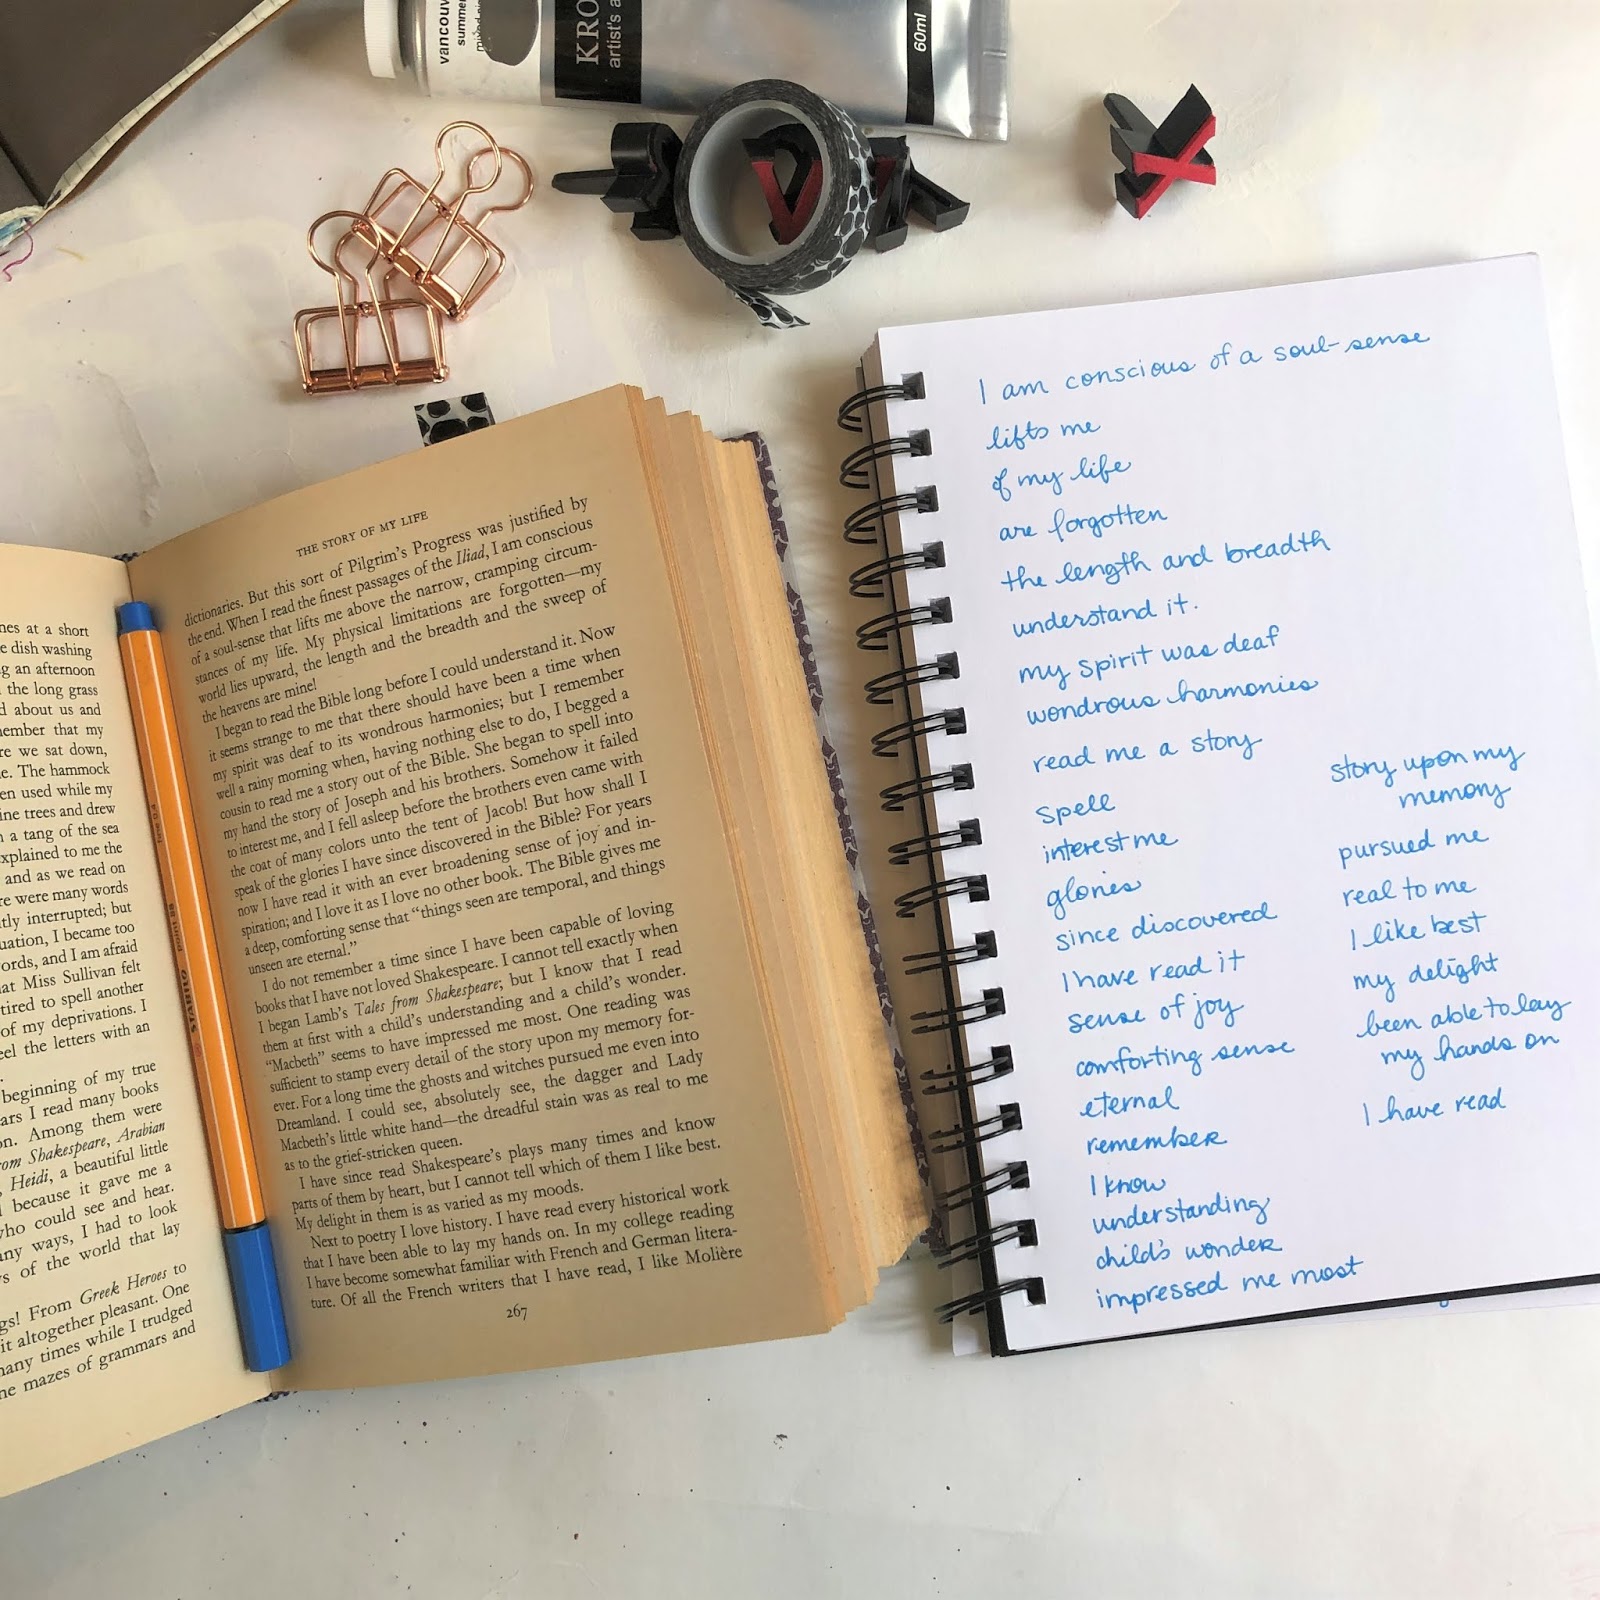 vancouv
summer
KRO
artist's a
60ml
nes at a short
e dish washing
ng an afternoon
the long grass
d about us and
member that my
re we sat down,
e. The hammock
en used while my
ine trees and drew
a tang of the sea
xplained to me the
and as we read on
re were many words
tly interrupted; but
uation, I became too
ords, and I am afraid
at Miss Sullivan felt
tired to spell another
of my deprivations. I
eel the letters with an
beginning of my true
ars I read many books
on. Among them were
rom Shakespeare, Arabian
Heidi, a beautiful little
l because it gave me a
who could see and hear.
any ways, I had to look
s of the world that lay
gs! From Greek Heroes to
it altogether pleasant. One
many times while I trudged
he mazes of grammars and
STABILO
THE STORY OF MY LIFE
dictionaries. But this sort of Pilgrim's Progress was justified by
the end. When I read the finest passages of the Iliad, I am conscious
of a soul-sense that lifts me above the narrow, cramping circum-
stances of my life. My physical limitations are forgotten—my
world lies upward, the length and the breadth and the sweep of
the heavens are mine!
I began to read the Bible long before I could understand it. Now
it seems strange to me that there should have been a time when
my spirit was deaf to its wondrous harmonies; but I remember
well a rainy morning when, having nothing else to do, I begged a
cousin to read me a story out of the Bible. She began to spell into
my hand the story of Joseph and his brothers. Somehow it failed
to interest me, and I fell asleep before the brothers even came with
the coat of many colors unto the tent of Jacob! But how shall I
speak of the glories I have since discovered in the Bible? For years
now I have read it with an ever broadening sense of joy and in-
spiration; and I love it as I love no other book. The Bible gives me
a deep, comforting sense that "things seen are temporal, and things
unseen are eternal."
I do not remember a time since I have been capable of loving
books that I have not loved Shakespeare. I cannot tell exactly when
I began Lamb's Tales from Shakespeare; but I know that I read
them at first with a child's understanding and a child's wonder.
"Macbeth" seems to have impressed me most. One reading was
sufficient to stamp every detail of the story upon my memory for-
ever. For a long time the ghosts and witches pursued me even into
Dreamland. I could see, absolutely see, the dagger and Lady
Macbeth's little white hand—the dreadful stain was as real to me
as to the grief-stricken queen.
I have since read Shakespeare's plays many times and know
parts of them by heart, but I cannot tell which of them I like best.
My delight in them is as varied as my moods.
Next to poetry I love history. I have read every historical work
that I have been able to lay my hands on. In my college reading
I have become somewhat familiar with French and German litera-
ture. Of all the French writers that I have read, I like Molière
267
I am conscious of a soul-sense
lifts me
of my life
are forgotten
the length and breadth
understand it.
my spirit was deaf
wondrous harmonies
read me a story
spell
interest me
glories
since discovered
I have read it
sense of joy
comforting sense
eternal
remember
I know
understanding
child's wonder
impressed me most
story upon my
memory
pursued me
real to me
I like best
my delight
been able to lay
my hands on
I have read